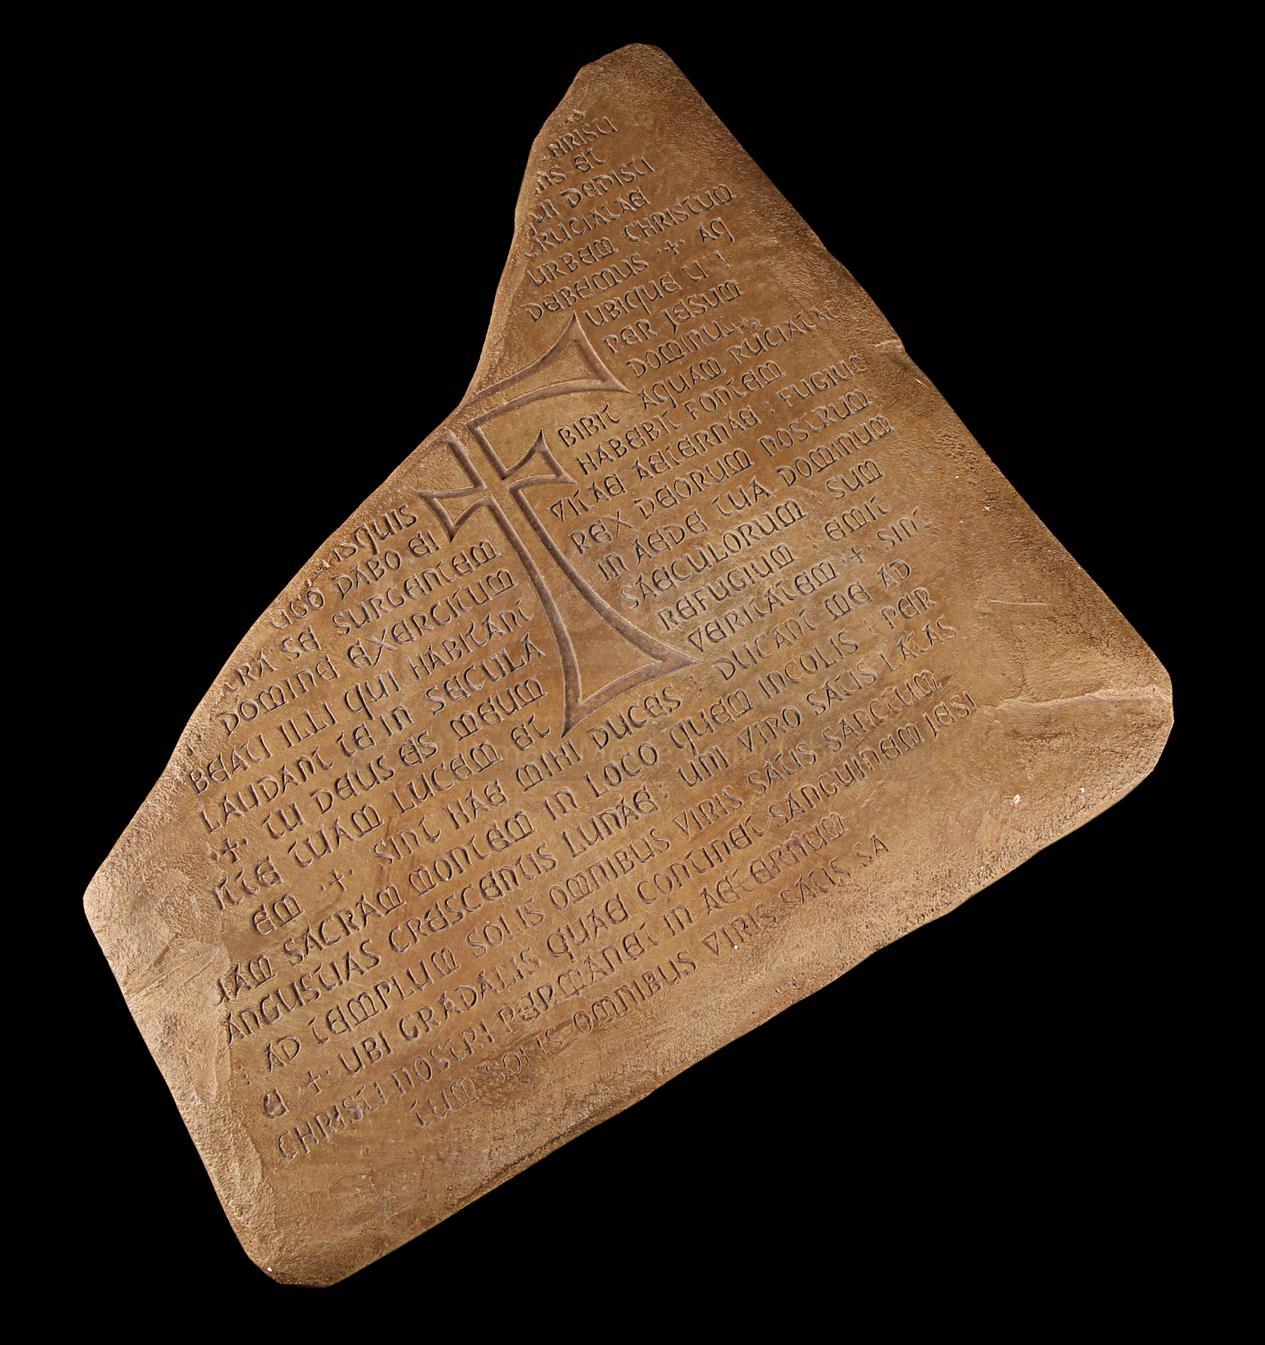 HRISTI
NS ET
UI DEDISTI
CRUCIATAE
URBEM CHRISTUM
DEBEMUS + AQ
UBIQUE TI :
PER JESUM
ISQUIS BIBIT AQUAM RUCIATAE
UGO DABO EI HABEBIT FONTEM
CRA SE SURGENTEM VITAE AETERNAE : FUGIUT
DOMINE EXERCITUM REX DEORUM NOSTRUM
BEATI ILLI QUI HABITANT IN AEDE TUA DOMINUM
LAUDANT TE IN SECULA SAECULORUM : SUM
+ TU DEUS ES MEUM REFUGIUM : EMIT
ITTE TUAM LUCEM ET VERITATEM + SINT
EM + SINT HAE MIHI DUCES : DUCANT ME AD
IAM SACRAM MONTEM IN LOCO QUEM INCOLIS : PER
ANGUSTIAS CRESCENTIS LUNAE : UNI VIRO SATIS LATAS
: AD TEMPLUM SOLIS OMNIBUS VIRIS SATIS SANCTUM
E + UBI GRADALIS QUAE CONTINET SANGUINEM JESI
CHRISTI NOSTRI PERMANET IN AETERNUM
TUM SOLIS OMNIBUS VIRIS SATIS SA